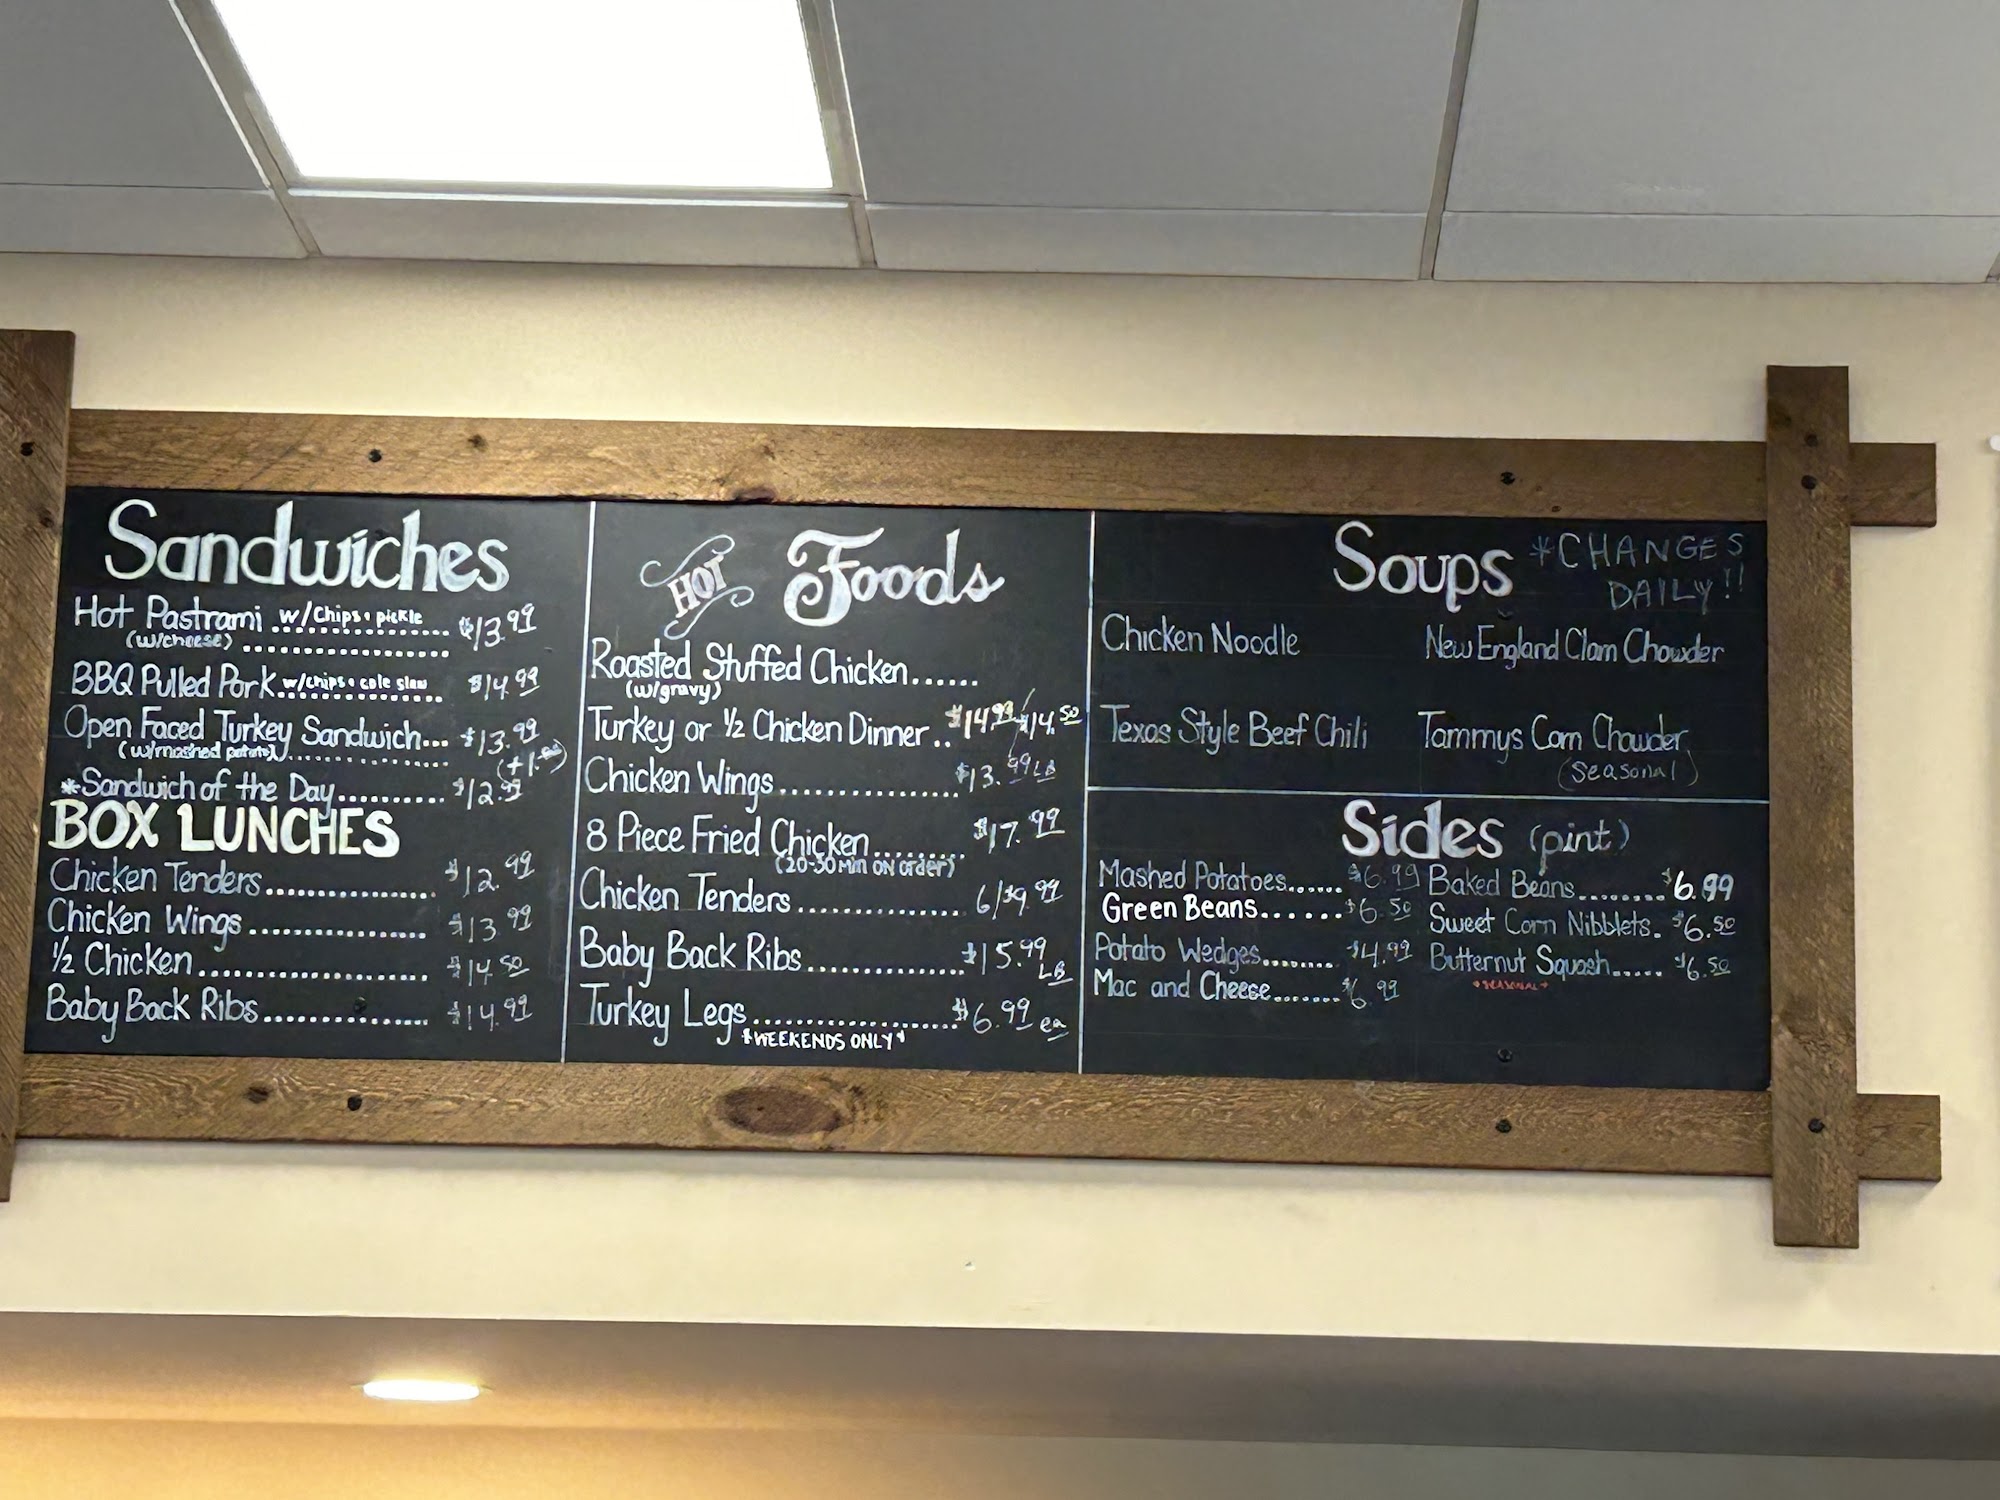 Sandwiches
Hot Pastrami w/Chips & pickle $13.99
(w/cheese)
BBQ Pulled Pork w/chips & cole slaw $14.99
Open Faced Turkey Sandwich... $13.99
(w/mashed potato) (+1.00)
*Sandwich of the Day.......... $12.99
BOX LUNCHES
Chicken Tenders................ $12.99
Chicken Wings................. $13.99
½ Chicken...................... $14.50
Baby Back Ribs................ $14.99
HOT Foods
Roasted Stuffed Chicken......
(w/gravy)
Turkey or ½ Chicken Dinner.. $14.99/$14.50
Chicken Wings................. $13.99 LB
8 Piece Fried Chicken......... $17.99
(20-30 Min ON order)
Chicken Tenders............... 6/$9.99
Baby Back Ribs............... $15.99 LB
Turkey Legs.................... $6.99 ea
*WEEKENDS ONLY*
Soups *CHANGES DAILY!!
Chicken Noodle New England Clam Chowder
Texas Style Beef Chili Tammys Corn Chowder
(Seasonal)
Sides (pint)
Mashed Potatoes...... $6.99 Baked Beans......... $6.99
Green Beans....... $6.50 Sweet Corn Nibblets. $6.50
Potato Wedges........ $4.99 Butternut Squash..... $6.50
*SEASONAL*
Mac and Cheese....... $6.99